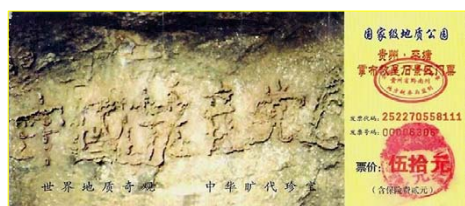 中国共产党亡
世界地质奇观 中华旷代珍宝
国家级地质公园
贵州·平塘
掌布藏字石景区门票
发票代码: 252270558111
发票号码: 00006306
票价: 伍拾元
(含保险费贰元)